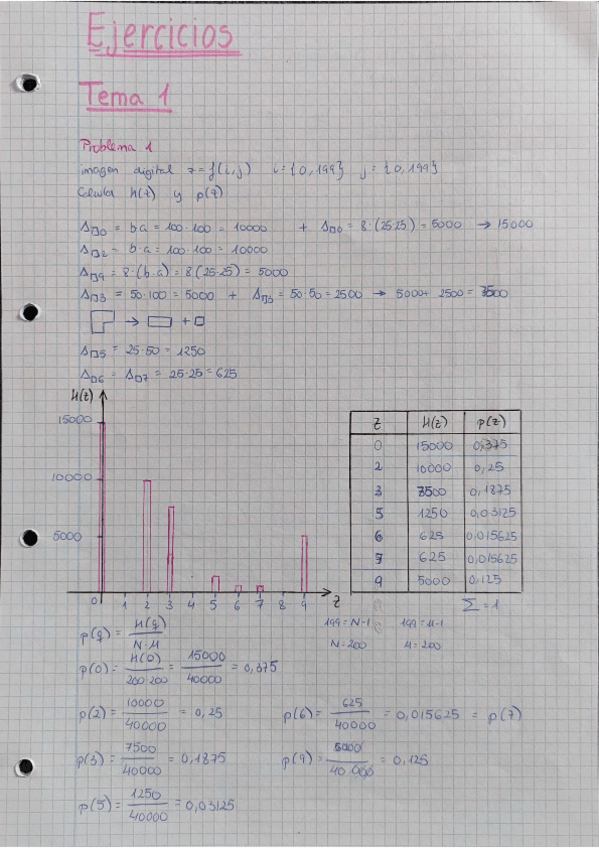 Ejercicios
Tema 1
Problema 1
imagen digital z = f(i,j) i = {0, 199} j = {0, 199}
Calcula H(z) y p(q)
A□0 = b·a = 100·100 = 10000 + A□0 = 8·(25·25) = 5000 → 15000
A□2 = b·a = 100·100 = 10000
A□9 = 8·(b·a) = 8(25·25) = 5000
A□3 = 50·100 = 5000 + A□3 = 50·50 = 2500 → 5000+ 2500 = 7500
→ +
A□5 = 25·50 = 1250
A□6 = A□7 = 25·25 = 625
H(z)
15000
10000
5000
0 1 2 3 4 5 6 7 8 9 z
z H(z) p(z)
0 15000 0,375
2 10000 0,25
3 7500 0,1875
5 1250 0,03125
6 625 0,015625
7 625 0,015625
9 5000 0,125
Σ = 1
p(q) = H(q) / N·M
199 = N-1 199 = M-1
N = 200 M = 200
p(0) = H(0) / 200·200 = 15000 / 40000 = 0,375
p(2) = 10000 / 40000 = 0,25
p(6) = 625 / 40000 = 0,015625 = p(7)
p(3) = 7500 / 40000 = 0,1875
p(9) = 5000 / 40.000 = 0,125
p(5) = 1250 / 40000 = 0,03125